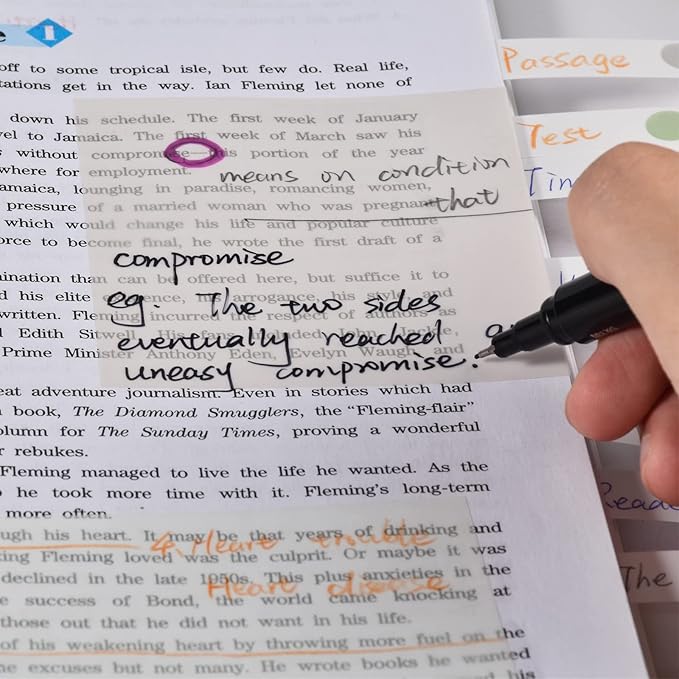 e 1
off to some tropical isle, but few do. Real life,
tations get in the way. Ian Fleming let none of
down his schedule. The first week of January
vel to Jamaica. The first week of March saw his
s without compromise—this portion of the year
where for employment.
means on condition
amaica, lounging in paradise, romancing women,
pressure of a married woman who was pregnant
that
which would change his life and popular culture
orce to become final, he wrote the first draft of a
compromise
ination than can be offered here, but suffice it to
d his elite
ence, his arrogance, his style and
eg. The two sides
written. Fleming incurred the respect of authors as
eventually reached a
d Edith Sitwell. His fans included John
Prime Minister Anthony Eden, Evelyn Waugh, and
uneasy compromise.
eat adventure journalism. Even in stories which had
book, The Diamond Smugglers, the “Fleming-flair”
olumn for The Sunday Times, proving a wonderful
r rebukes.
Fleming managed to live the life he wanted. As the
he took more time with it. Fleming's long-term
more often.
ugh his heart. It may be that years of drinking and
& Heart trouble
ing Fleming loved was the culprit. Or maybe it was
declined in the late 1950s. This plus anxieties in the
Heart disease
e success of Bond, the world came knocking at
those out that he did not want in his life.
of his weakening heart by throwing more fuel on the
he excuses but not many. He wrote books he wanted
his
Passage
Test
Tin
Reade
The